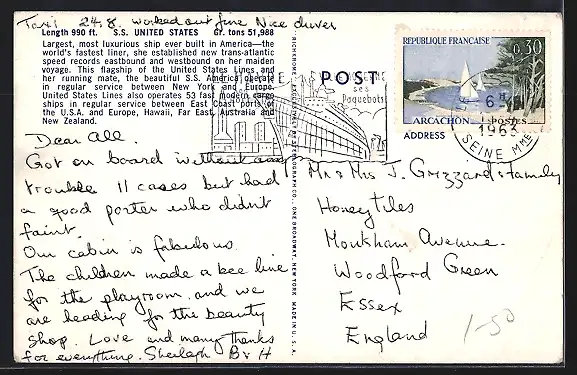 Taxi 24/8. worked out fine Nice driver
Length 990 ft. S.S. UNITED STATES Gr. tons 51,988
Largest, most luxurious ship ever built in America—the
world's fastest liner, she established new trans-atlantic
speed records eastbound and westbound on her maiden
voyage. This flagship of the United States Lines and
her running mate, the beautiful S.S. America operate
in regular service between New York and Europe.
United States Lines also operates 53 fast modern cargo
ships in regular service between East Coast ports of
the U.S.A. and Europe, Hawaii, Far East, Australia and
New Zealand.
Dear All.
Got on board without any
trouble 11 cases but had
a good porter who didn't
faint.
Our cabin is fabulous.
The children made a bee line
for the playroom, and we
are heading for the beauty
shop. Love and many thanks
for everything. Sheilagh B + H
MADE IN U.S.A.
POST
ses
Paquebots
REPUBLIQUE FRANÇAISE
0,30
ARCACHON
POSTES
6 H
1963
SEINE MME
ADDRESS
Mr & Mrs J. Grizzard & family
Honeytiles
Monkham Avenue.
Woodford Green
Essex
England
1-50